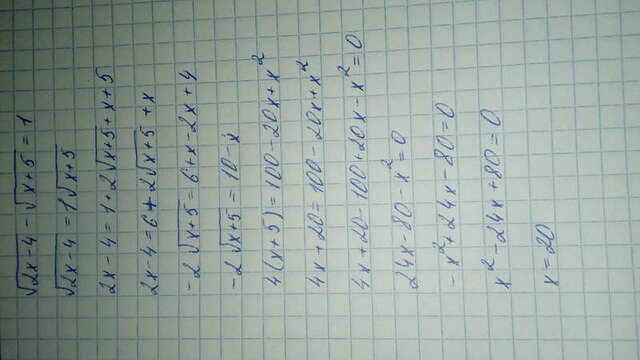 √2x-4 - √x+5 = 1
√2x-4 = 1√x+5
2x-4 = 1+2√x+5+x+5
2x-4 = 6+2√x+5 +x
-2√x+5 = 6+x-2x+4
-2√x+5 = 10-x
4(x+5) = 100-20x+x²
4x+20 = 100-20x+x²
4x+20-100+20x-x²=0
24x-80-x²=0
-x²+24x-80=0
x²-24x+80=0
x=20